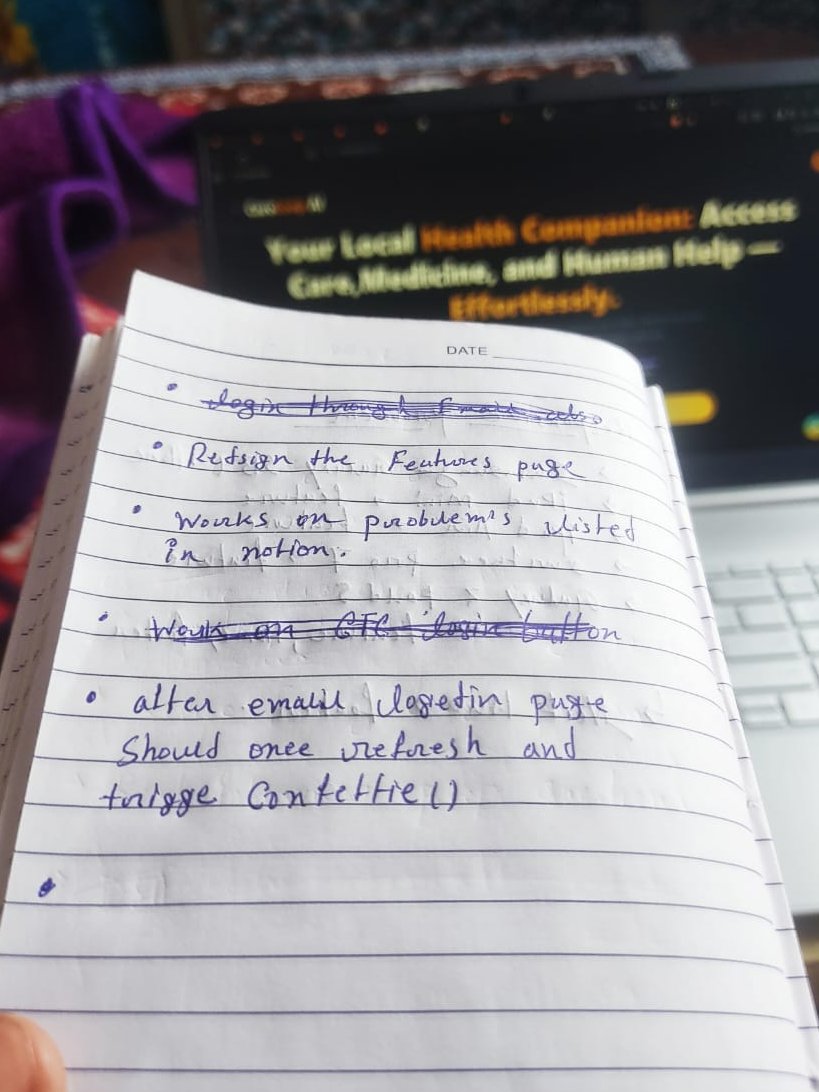 Your Local Health Companion: Access
Care, Medicine, and Human Help —
Effortlessly.
DATE
login through Email also
Redsign the Features page
Works on problem's listed
in notion.
Work on CTC login button
after email logedin page
Should once refresh and
trigge Confettie()